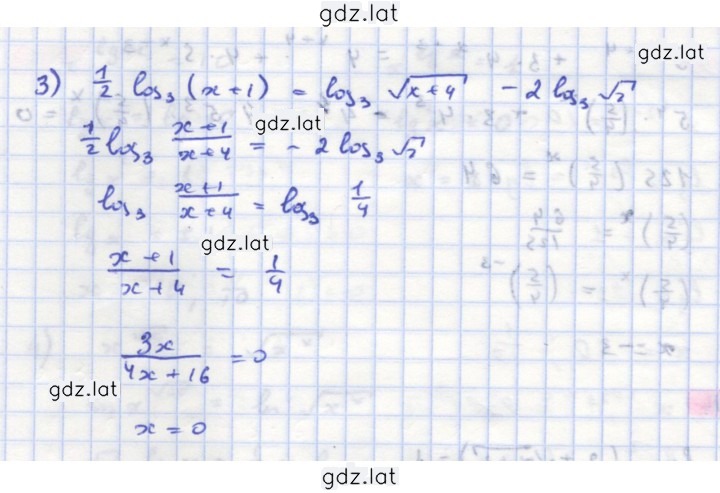 gdz.lat
gdz.lat
3) 1/2 log₃ (x+1) = log₃ √(x+4) - 2 log₃ √2
gdz.lat
1/2 log₃ (x+1)/(x+4) = - 2 log₃ √2
log₃ (x+1)/(x+4) = log₃ 1/4
gdz.lat
(x+1)/(x+4) = 1/4
3x/(4x+16) = 0
gdz.lat
x = 0
gdz.lat